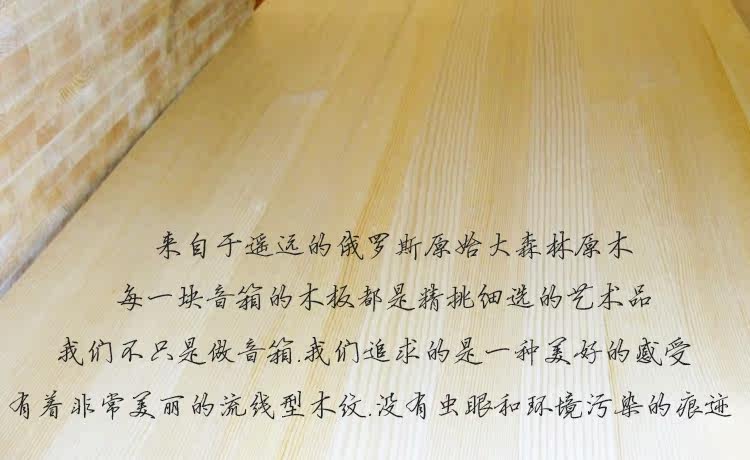 来自于遥远的俄罗斯原始大森林原木
每一块音箱的木板都是精挑细选的艺术品
我们不只是做音箱.我们追求的是一种美好的感受
有着非常美丽的流线型木纹.没有虫眼和环境污染的痕迹